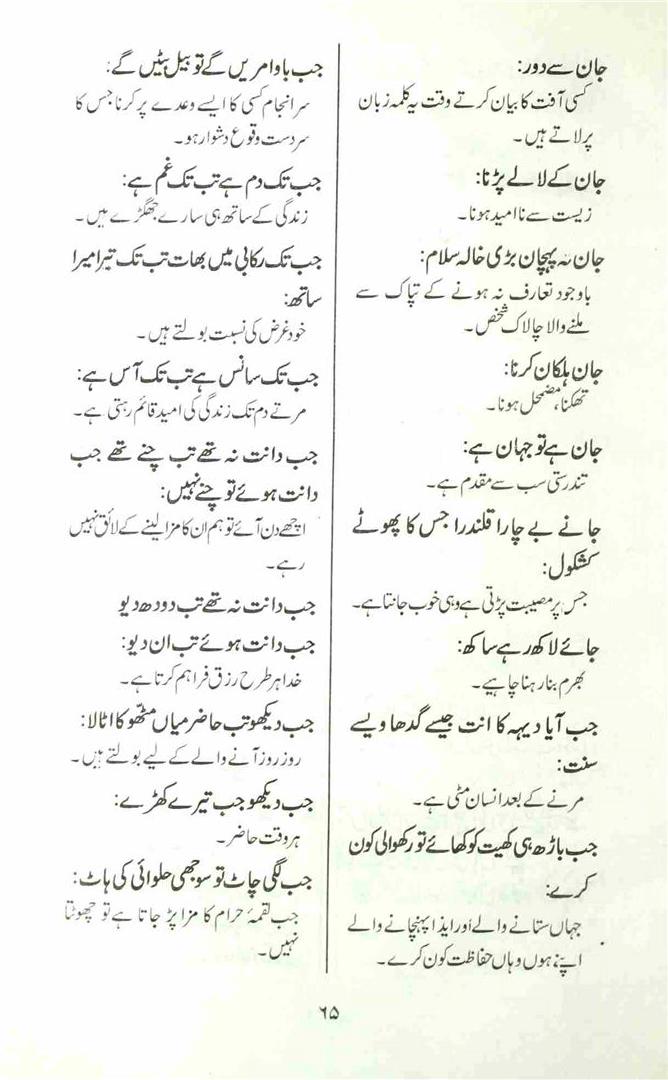 جان سے دور:
کسی آفت کا بیان کرتے وقت یہ کلمہ زبان
پر لاتے ہیں۔
جان کے لالے پڑنا:
زیست سے ناامید ہونا۔
جان نہ پہچان بڑی خالہ سلام:
باوجود تعارف نہ ہونے کے تپاک سے
ملنے والا چالاک شخص۔
جان ہلکان کرنا:
تھکنا، مضمحل ہونا۔
جان ہے تو جہان ہے:
تندرستی سب سے مقدم ہے۔
جانے بے چارا قلندرا جس کا پھوٹے
کشکول:
جس پر مصیبت پڑتی ہے وہی خوب جانتا ہے۔
جائے لاکھ رہے ساکھ:
بھرم بنا رہنا چاہیے۔
جب آیا دیہہ کا انت جیسے گدھا ویسے
سنت:
مرنے کے بعد انسان مٹی ہے۔
جب باڑھ ہی کھیت کو کھائے تو رکھوالی کون
کرے:
جہاں ستانے والے اور ایذا پہنچانے والے
اپنے ہوں وہاں حفاظت کون کرے۔
جب باوا مریں گے تو بیل بٹیں گے:
سرانجام کسی کا ایسے وعدے پر کرنا جس کا
سردست وقوع دشوار ہو۔
جب تک دم ہے تب تک غم ہے:
زندگی کے ساتھ ہی سارے جھگڑے ہیں۔
جب تک رکابی میں بھات تب تک تیرا میرا
ساتھ:
خود غرض کی نسبت بولتے ہیں۔
جب تک سانس ہے تب تک آس ہے:
مرتے دم تک زندگی کی امید قائم رہتی ہے۔
جب دانت نہ تھے تب چنے تھے جب
دانت ہوئے تو چنے نہیں:
اچھے دن آئے تو ہم ان کا مزا لینے کے لائق نہیں
رہے۔
جب دانت نہ تھے تب دودھ دیو
جب دانت ہوئے تب ان دیو:
خدا ہر طرح رزق فراہم کرتا ہے۔
جب دیکھو تب حاضر میاں مٹھو کا اٹالا:
روز روز آنے والے کے لیے بولتے ہیں۔
جب دیکھو جب تیرے کھڑے:
ہر وقت حاضر۔
جب لگی چاٹ تو سوجھی حلوائی کی ہاٹ:
جب لقمۂ حرام کا مزا پڑ جاتا ہے تو چھوٹتا
نہیں۔
۶۵